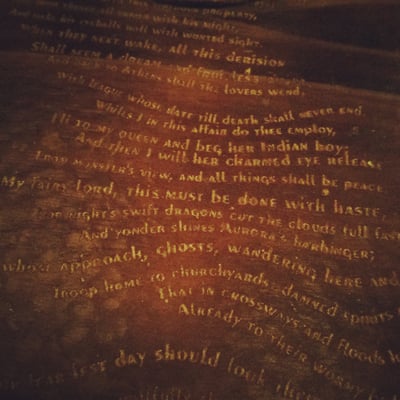 with his might,
And make his eyeballs roll with wonted sight.
When they next wake, all this derision
Shall seem a dream and fruitless
to Athens shall the lovers wend,
With league whose date till death shall never end.
Whiles I in this affair do thee employ,
I'll to my queen and beg her Indian boy;
And then I will her charmed eye release
From monster's view, and all things shall be peace.
My fairy lord, this must be done with haste,
For night's swift dragons cut the clouds full fast
And yonder shines Aurora's harbinger;
whose approach, ghosts, wandering here and
Troop home to churchyards: damned spirits
That in crossways and floods
Already to their wormy
fear lest day should look